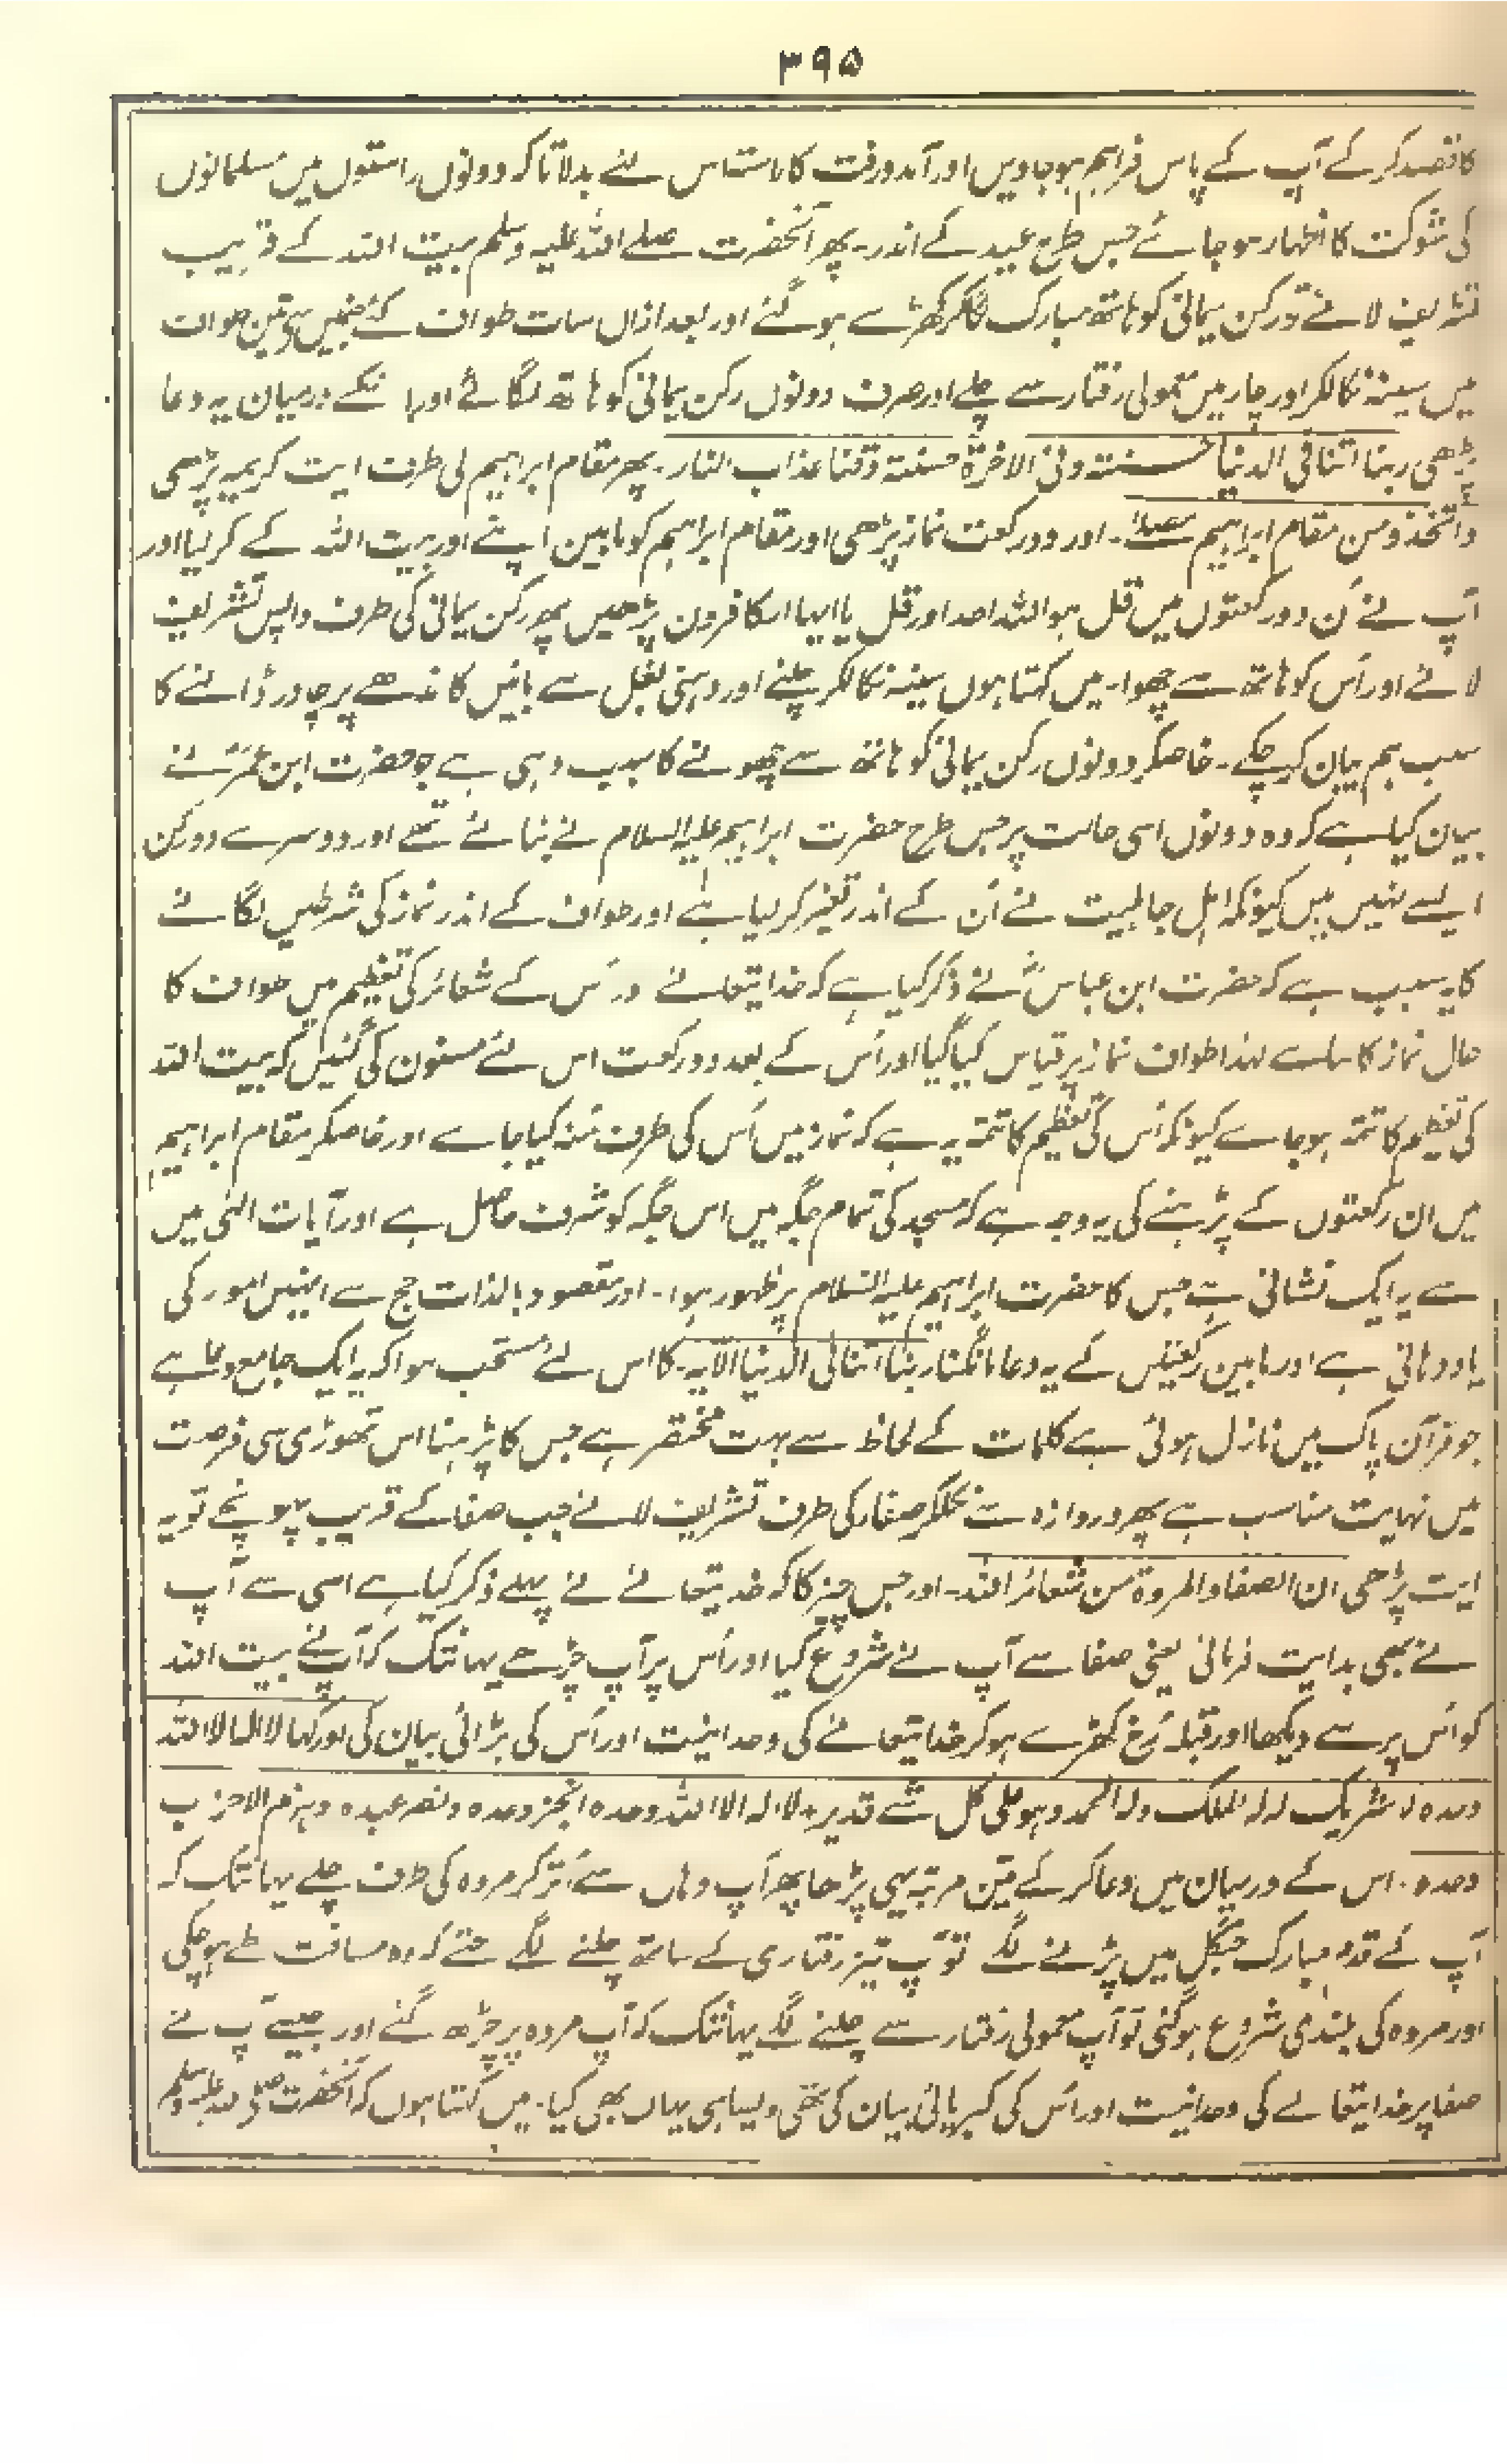 ۳۹۵
کا قصد کرکے آپ کے پاس فراہم ہوجاویں اور آمدورفت کا راستہ اس لئے بدلا تاکہ دونوں راستوں میں مسلمانوں
کی شوکت کا اظہار ہوجائے جس طرح عید کے اندر۔ پھر آنحضرت صلے اللہ علیہ وسلم بیت اللہ کے قریب
تشریف لائے تو رکن یمانی کو ہاتھ مبارک لگاکر کھڑے ہوگئے اور بعد ازاں سات طواف کئے جنمیں سے تین طواف
میں سینہ نکالکر اور چار میں معمولی رفتار سے چلے اور صرف دونوں رکن یمانی کو ہاتھ لگائے اور انکے درمیان یہ دعا
پڑھی ربنا اتنا فی الدنیا حسنتہ وفی الاخرۃ حسنتہ وقنا عذاب النار۔ پھر مقام ابراہیم کی طرف ایت کریمہ پڑھی
واتخذو من مقام ابراہیم مصلا۔ اور دو رکعت نماز پڑھی اور مقام ابراہیم کو مابین اپنے اور بیت اللہ کے کرلیا اور
آپ نے اُن دو رکعتوں میں قل ہو اللہ احد اور قل یا ایہا الکافرون پڑھیں پھر رکن یمانی کی طرف واپس تشریف
لائے اور اُس کو ہاتھ سے چھوا۔ میں کہتا ہوں سینہ نکالکر چلنے اور دہنی بغل سے بائیں کاندھے پر چادر ڈالنے کا
سبب ہم بیان کرچکے۔ خاصکر دونوں رکن یمانی کو ہاتھ سے چھونے کا سبب وہی ہے جو حضرت ابن عمرؓ نے
بیان کیا ہے کہ وہ دونوں اسی حالت پر جس طرح حضرت ابراہیم علیہ السلام نے بنائے تھے اور دوسرے دو رکن
ایسے نہیں ہیں کیونکہ اہل جاہلیت نے اُن کے اندر تغیر کرلیا ہے اور طواف کے اندر نماز کی شرطیں لگانے
کا یہ سبب ہے کہ حضرت ابن عباسؓ نے ذکر کیا ہے کہ خدایتعالےٰ اور اُس کے شعائر کی تعظیم میں طواف کا
حال نماز کا سا ہے لہذا طواف نماز پر قیاس کیا گیا اور اُس کے بعد دو رکعت اس لئے مسنون کی گئیں کہ بیت اللہ
کی تعظیم کا تتمہ ہوجاے کیونکہ اُس کی تعظیم کا تتمہ یہ ہے کہ نماز میں اُس کی طرف مُنہ کیا جاے اور خاصکر مقام ابراہیم
میں ان رکعتوں کے پڑہنے کی یہ وجہ ہے کہ مسجد کی تمام جگہ میں اس جگہ کو شرف حاصل ہے اور آیات الہٰی میں
سے یہ ایک نشانی ہے جس کا حضرت ابراہیم علیہ السلام پر ظہور ہوا۔ اور مقصود بالذات حج سے انہیں امور کی
یاد دہانی ہے اور مابین رکعتیں کے یہ دعا مانگنا ربنا اتنا فی الدنیا الآیہ۔ کا اس لئے مستحب ہوا کہ یہ ایک جامع دعا ہے
جو قرآن پاک میں نازل ہوئی ہے کلمات کے لحاظ سے بہت مختصر ہے جس کا پڑہنا اس تھوڑی سی فرصت
میں نہایت مناسب ہے پھر دروازہ سے نکلکر صفا کی طرف تشریف لائے جب صفا کے قریب پہونچے تو یہ
ایت پڑھی ان الصفا والمروۃ من شعائر اللہ۔ اور جس چیز کا کہ خدیتعالےٰ نے پہلے ذکر کیا ہے اسی سے آپ
نے بھی ہدایت فرمائی یعنی صفا سے آپ نے شروع کیا اور اُس پر آپ چڑھے یہانتک کہ آپنے بیت اللہ
کو اُس پر سے دیکھا اور قبلہ رُخ کھڑے ہوکر خدایتعالےٰ کی وحدانیت اور اُس کی بڑائی بیان کی اور کہا لا الہ الا اللہ
وحدہ لا شریک لہ لہ الملک ولہ الحمد وہو علی کل شئے قدیر ٭ لا الہ الا اللہ وحدہ انجز وعدہ ونصر عبدہ وہزم الاحزاب
وحدہ۔ اس کے درمیان میں دعا کرکے تین مرتبہ یہی پڑھا پھر آپ وہاں سے اُتر کر مروہ کی طرف چلے یہانتک کہ
آپ کے قدم مبارک جنگل میں پڑنے لگے تو آپ تیز رفتاری کے ساتھ چلنے لگے حتے کہ وہ مسافت طے ہوچکی
اور مروہ کی بلندی شروع ہوگئی تو آپ معمولی رفتار سے چلنے لگے یہانتک کہ آپ مروہ پر چڑھ گئے اور جیسے آپ نے
صفا پر خدایتعالےٰ کی وحدانیت اور اُس کی کبریائی بیان کی تھی ویسا ہی یہاں بھی کیا۔ میں کہتا ہوں کہ آنحضرت صلی اللہ علیہ وسلم